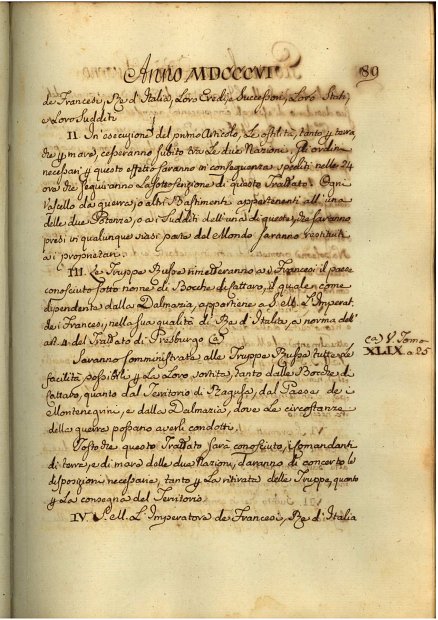 ANNO MDCCCVI
89
de Francesi, Re d'Italia, Loro Eredi, e Successori, Loro Stati,
e Loro Sudditi
II. In esecuzione del primo Articolo, Le ostilità, tanto per terra,
che per mare, cesseranno subito tra Le due Nazioni. Gli ordini
necessari per questo effetto saranno in conseguenza spediti nelle 24
ore che seguiranno La sottoscrizione di questo Trattato. Ogni
Vascello da guerra, o altri Bastimenti appartenenti all'una
delle due Potenze, o ai Sudditi dell'una di queste, che saranno
presi in qualunque siasi parte del Mondo saranno restituiti
ai proprietari.
III. Le Truppe Russe rimetteranno ai Francesi il paese
conosciuto sotto nome di Bocche di Cattaro, il quale, come
dipendenta dalla Dalmazia, appartiene a S. M. L'Imperat.
de i Francesi, nella sua qualità di Re d'Italia, a norma dell'
art. 4 del Trattato di Presburgo (a)
(a) V. Tomo
XLIX a 25
Saranno somministrate alle Truppe Russe tutte Le
facilità possibili per La Loro sortita, tanto dalle Bocche di
Cattaro, quanto dal Territorio di Ragusa, dal Paese de i
Montenegrini, e dalla Dalmazia, dove Le circostanze
della guerra possano averli condotti.
Tosto che questo Trattato sarà conosciuto, i Comandanti
di terra, e di mare delle due Nazioni, daranno di concerto le
disposizioni necessarie, tanto per La ritirata delle Truppe, quanto
per La consegna del Territorio.
IV. S. M. L'Imperatore de Francesi, Re d'Italia